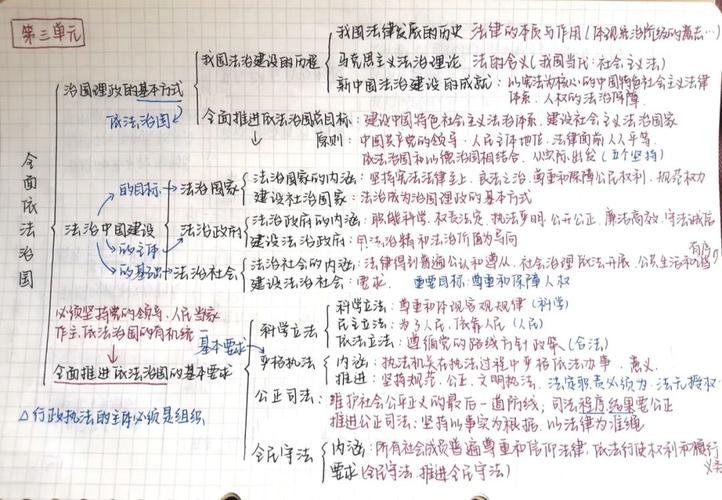 第三单元
全面依法治国
治国理政的基本方式
依法治国
我国法治建设的历程
我国法律发展的历史 法律的本质与作用(体现统治阶级的意志…)
马克思主义法治理论 法的含义(我国当代:社会主义法)
新中国法治建设的成就:以宪法为核心的中国特色社会主义法律
体系、人权的法治保障
全面推进依法治国总目标:建设中国特色社会主义法治体系、建设社会主义法治国家
原则:中国共产党的领导、人民主体地位、法律面前人人平等、
依法治国和以德治国相结合、从实际出发(五个坚持)
法治中国建设
的目标
法治国家
法治国家的内涵:坚持宪法法律至上、良法之治、尊重和保障公民权利、规范权力
建设法治国家:法治成为治国理政的基本方式
的主体
法治政府
法治政府的内涵:职能科学、权责法定、执法严明、公开公正、廉洁高效、守法诚信
建设法治政府:
法治精
和法治
为导向
的基础
法治社会
法治社会的内涵:法律得到普遍公认和遵从、社会治理依法开展、公共生活和谐有序
建设法治社会:要求、
重要目标:尊重和保障人权
必须坚持党的领导、人民当家
作主、依法治国的有机统一
全面推进依法治国的基本要求
基本要求
△行政执法的主体必须是组织
科学立法
科学立法:尊重和体现客观规律(科学)
民主立法:为了人民、依靠人民(人民)
依法立法:遵循党的路线方针政策(合法)
严格执法
内涵:执法机关在执法过程中严格依法办事、意义
推进:坚持规范、公正、文明执法、法定职责必须为、法无授权
公正司法:
维护社会公平正义的最后一道防线;司法程序、结果要公正
推进公正司法:坚持以事实为根据、以法律为准绳
全民守法
内涵:所有社会成员普遍尊重和信仰法律、依法行使权利和履行义务
要求(全民守法、推进全民守法)